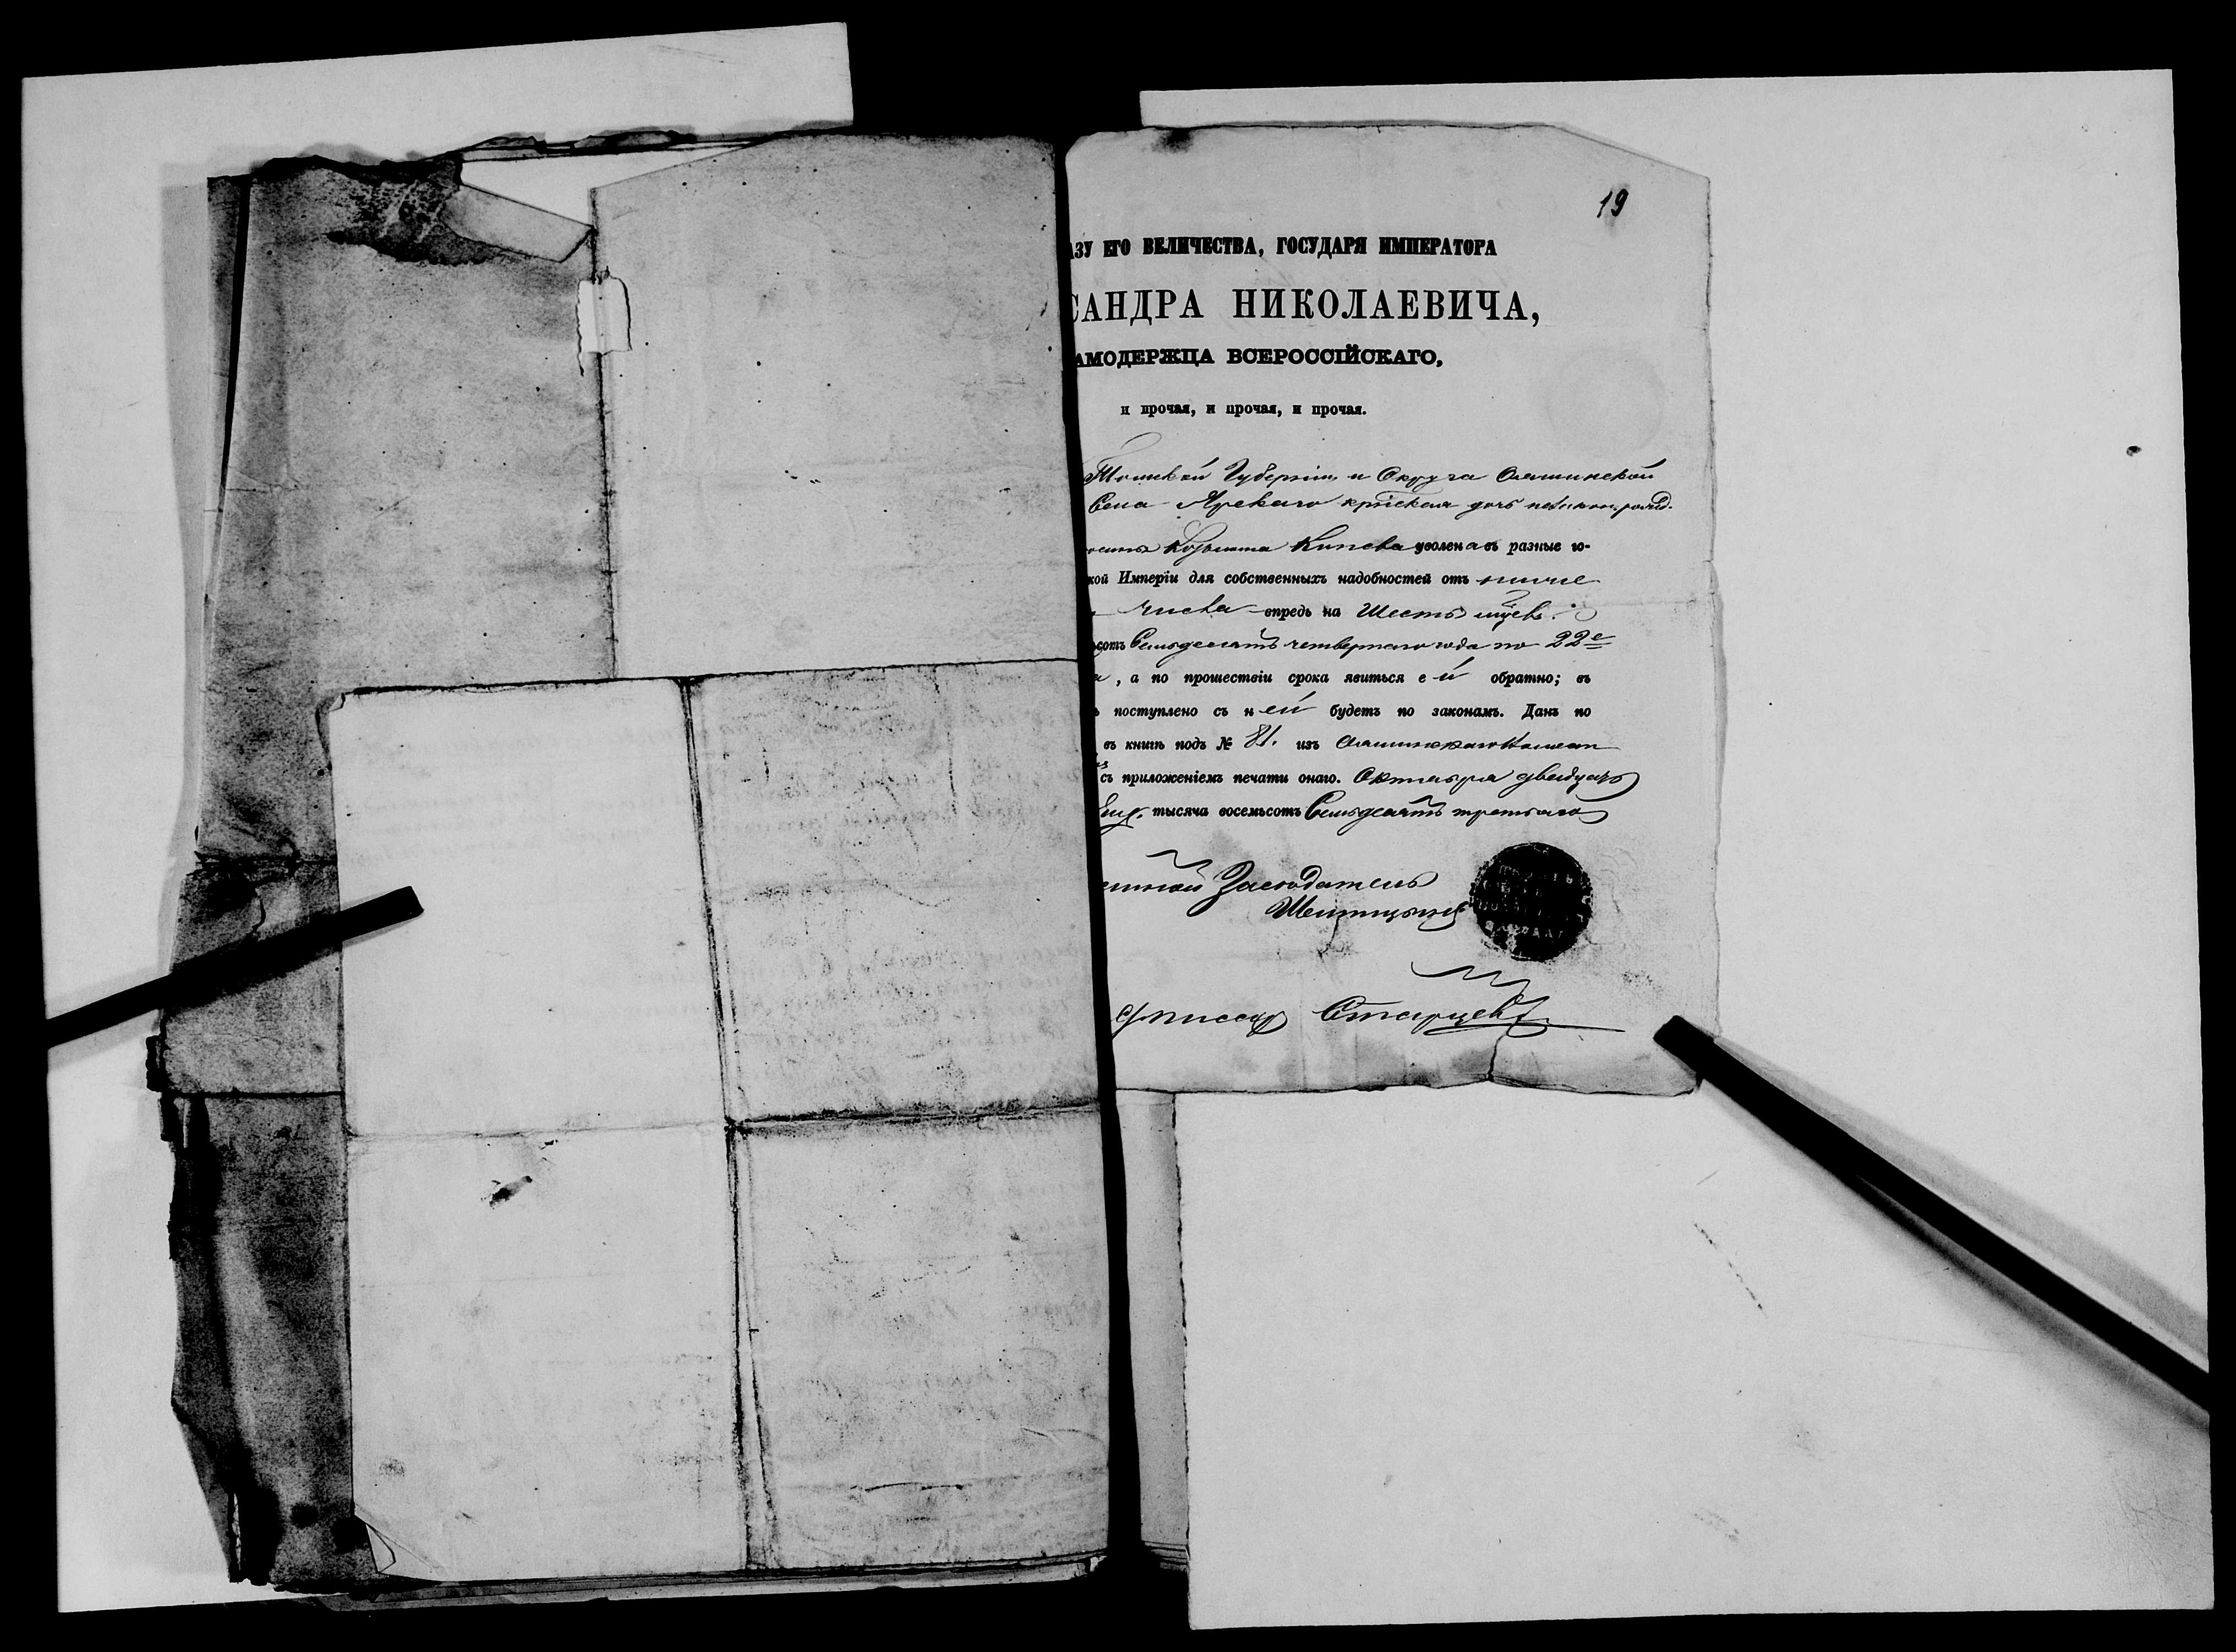 19
АЗУ ЕГО ВЕЛИЧЕСТВА, ГОСУДАРЯ ИМПЕРАТОРА
САНДРА НИКОЛАЕВИЧА,
АМОДЕРЖЦА ВСЕРОССІЙСКАГО,
и прочая, и прочая, и прочая.
Томской Губерніи и Округа Ояшинской
Села Ярскаго дочь
уволена въ разные го-
кой Имперіи для собственныхъ надобностей отъ ниже
числа впредь на Шесть мцевъ
сотъ Семьдесятъ четвертаго года по 22е
, а по прошествіи срока явиться ей обратно; въ
ъ поступлено съ ней будетъ по законамъ. Данъ по
въ книгѣ подъ № 81. изъ Ояшинскаго
съ приложеніемъ печати онаго. Октября двадцать
тысяча восемьсотъ Семьдесятъ третьаго
Засѣдатель
Старцевъ